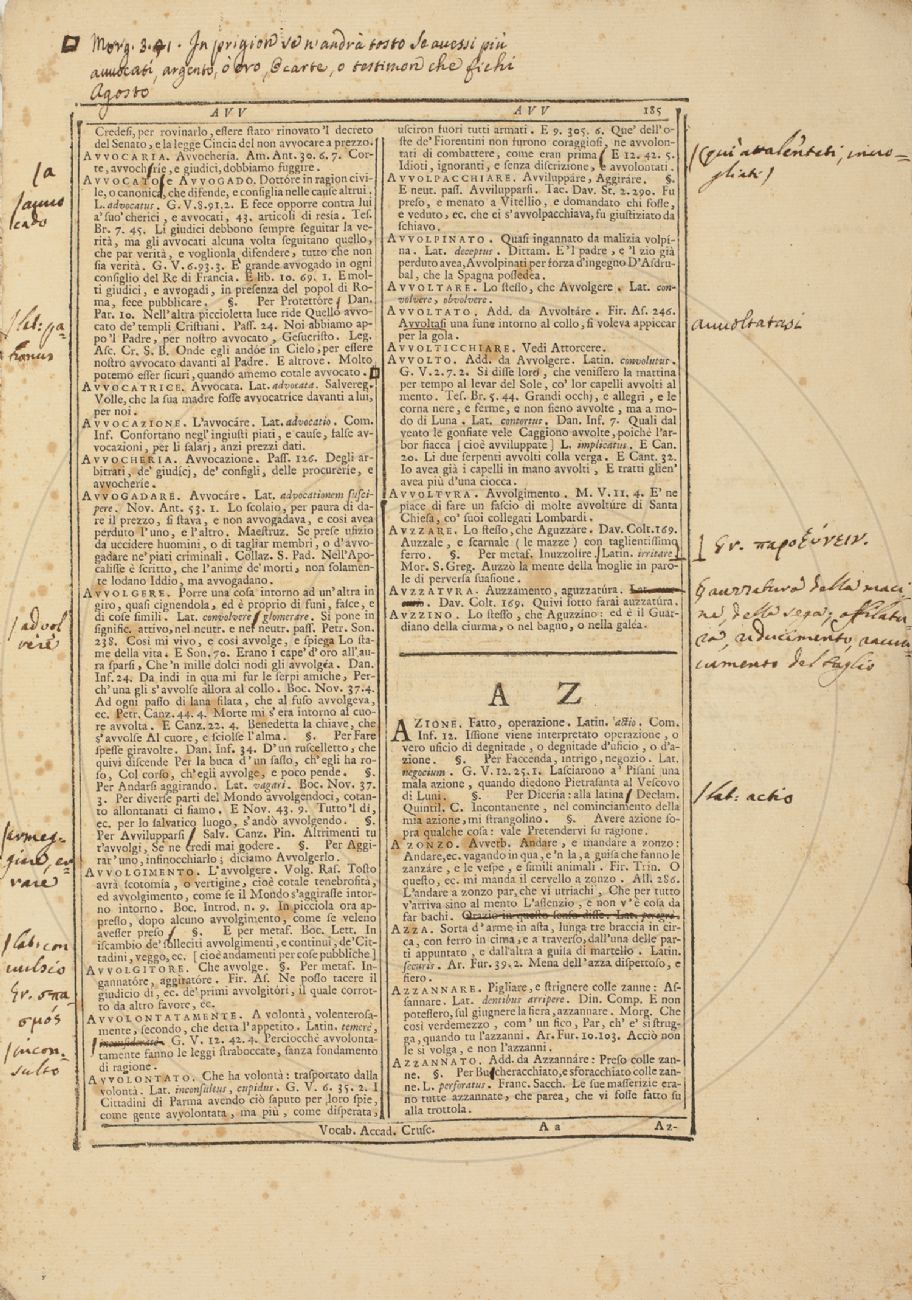 Morg. 3. 41. In prigion se n'andrà tosto Se avessi più
avvocati, argento, o oro, O carte, o testimon che fichi
Agosto
A V V A V V 185
Credesi, per rovinarlo, essere stato rinovato 'l decreto
del Senato, e la legge Cincia del non avvocare a prezzo.
AVVOCARIA. Avvocheria. Am. Ant. 30. 6. 7. Cor-
te, avvocherie, e giudici, dobbiamo fuggire.
AVVOCATO, e AVVOGADO. Dottore in ragion civi-
le, o canonica, che difende, e consiglia nelle cause altrui.
L. advocatus. G. V. 8. 91. 2. E fece opporre contra lui
a' suo' cherici, e avvocati, 43. articoli di resía. Tes.
Br. 7. 45. Li giudici debbono sempre seguitar la ve-
rità, ma gli avvocati alcuna volta seguitano quello,
che par verità, e voglionla difendere, tutto che non
sia verità. G. V. 6. 93. 3. E grande avvogado in ogni
consiglio del Re di Francia. E lib. 10. 69. 1. E mol-
ti giudici, e avvogadi, in presenza del popol di Ro-
ma, fece pubblicare. §. Per Protettóre / Dan.
Par. 10. Nell'altra piccioletta luce ride Quello avvo-
cato de' templi Cristiani. Pass. 24. Noi abbiamo ap-
po 'l Padre, per nostro avvocato, Gesucristo. Leg.
Asc. Cr. S. B. Onde egli andóe in Cielo, per essere
nostro avvocato davanti al Padre. E altrove. Molto
potemo esser sicuri, quando avemo cotale avvocato.
AVVOCATRICE. Avvocata. Lat. advocata. Salvereg.
Volle, che la sua madre fosse avvocatrice davanti a lui,
per noi.
AVVOCAZIONE. L'avvocáre. Lat. advocatio. Com.
Inf. Confortano negl'ingiusti piati, e cause, false av-
vocazioni, per li salarj, anzi prezzi dati.
AVVOCHERIA. Avvocazione. Pass. 126. Degli ar-
bitrati, de' giudicj, de' consigli, delle procurerie, e
avvocherie.
AVVOGADARE. Avvocáre. Lat. advocationem susci-
pere. Nov. Ant. 53. 1. Lo scolaio, per paura di da-
re il prezzo, si stava, e non avvogadava, e così avea
perduto l'uno, e l'altro. Maestruz. Se prese ufizio
da uccidere huomini, o di tagliar membri, o d'avvo-
gadare ne' piati criminali. Collaz. S. Pad. Nell'Apo-
calisse è scritto, che l'anime de' morti, non solamen-
te lodano Iddio, ma avvogadano.
AVVOLGERE. Porre una cosa intorno ad un'altra in
giro, quasi cignendola, ed è proprio di funi, fasce, e
di cose simili. Lat. convolvere / glomerare. Si pone in
signific. attivo, nel neutr. e nel neutr. pass. Petr. Son.
238. Così mi vivo, e così avvolge, e spiega Lo sta-
me della vita. E Son. 70. Erano i cape' d'oro all'au-
ra sparsi, Che 'n mille dolci nodi gli avvolgéa. Dan.
Inf. 24. Da indi in qua mi fur le serpi amiche, Per-
ch'una gli s'avvolse allora al collo. Boc. Nov. 37. 4.
Ad ogni passo di lana filata, che al fuso avvolgeva,
ec. Petr. Canz. 44. 4. Morte mi s'era intorno al cuo-
re avvolta. E Canz. 22. 4. Benedetta la chiave, che
s'avvolse Al cuore, e sciolse l'alma. §. Per Fare
spesse giravolte. Dan. Inf. 34. D'un ruscelletto, che
quivi discende Per la buca d'un sasso, ch'egli ha ro-
so, Col corso, ch'egli avvolge, e poco pende. §.
Per Andarsi aggirando. Lat. vagari. Boc. Nov. 37.
3. Per diverse parti del Mondo avvolgendoci, cotan-
to allontanati ci siamo. E Nov. 43. 9. Tutto 'l dì,
ec. per lo salvatico luogo, s'andò avvolgendo. §.
Per Avvilupparsi / Salv. Canz. Pin. Altrimenti tu
t'avvolgi, Se ne credi mai godere. §. Per Aggi-
rar'uno, infinocchiarlo; diciamo Avvolgerlo.
AVVOLGIMENTO. L'avvolgere. Volg. Ras. Tosto
avrà scotomia, o vertigine, cioè cotale tenebrosità,
ed avvolgimento, come se il Mondo s'aggirasse intor-
no intorno. Boc. Introd. n. 9. In picciola ora ap-
presso, dopo alcuno avvolgimento, come se veleno
avesser preso / §. E per metaf. Boc. Lett. In
iscambio de' solleciti avvolgimenti, e continui, de' Cit-
tadini, veggo, ec. [cioè andamenti per cose pubbliche]
AVVOLGITORE. Che avvolge. §. Per metaf. In-
gannatóre, aggiratóre. Fir. As. Ne posso tacere il
giudicio di, ec. de' primi avvolgitóri, il quale corrot-
to da altro favore, ec.
AVVOLONTATAMENTE. A volontà, volenterosa-
mente, secondo, che detta l'appetito. Latin. temerè,
inconsideratè. G. V. 12. 42. 4. Perciocchè avvolonta-
tamente fanno le leggi straboccate, sanza fondamento
di ragione.
AVVOLONTATO. Che ha volontà: trasportato dalla
volontà. Lat. inconsultus, cupidus. G. V. 6. 35. 2. I
Cittadini di Parma avendo ciò saputo per loro spie,
come gente avvolontata, ma più, come disperata,
usciron fuori tutti armati. E 9. 305. 6. Que' dell'o-
ste de' Fiorentini non furono coraggiosi, ne avvolon-
tati di combattere, come eran prima / E 12. 42. 5.
Idioti, ignoranti, e senza discrezione, e avvolontati.
AVVOLPACCHIARE. Avviluppáre, Aggiráre. §.
E neut. pass. Avvilupparsi. Tac. Dav. St. 2. 290. Fu
preso, e menato a Vitellio, e domandato chi fosse,
e veduto, ec. che ei s'avvolpacchiava, fu giustiziato da
schiavo.
AVVOLPINATO. Quasi ingannato da malizia volpi-
na. Lat. deceptus. Dittam. E 'l padre, e 'l zio già
perduto avea, Avvolpinati per forza d'ingegno D'Asdru-
bal, che la Spagna possedea.
AVVOLTARE. Lo stesso, che Avvolgere. Lat. con-
volvere, obvolvere.
AVVOLTATO. Add. da Avvoltáre. Fir. As. 246.
Avvoltasi una fune intorno al collo, si voleva appiccar
per la gola.
AVVOLTICCHIARE. Vedi Attorcere.
AVVOLTO. Add. da Avvolgere. Latin. convolutus.
G. V. 2. 7. 2. Si disse loro, che venissero la mattina
per tempo al levar del Sole, co' lor capelli avvolti al
mento. Tes. Br. 5. 44. Grandi occhj, e allegri, e le
corna nere, e ferme, e non sieno avvolte, ma a mo-
do di Luna. Lat. contortus. Dan. Inf. 7. Quali dal
vento le gonfiate vele Caggiono avvolte, poichè l'ar-
bor fiacca [cioè avviluppate] L. implicatus. E Can.
20. Li duo serpenti avvolti colla verga. E Cant. 32.
Io avea già i capelli in mano avvolti, E tratti glien'
avea più d'una ciocca.
AVVOLTURA. Avvolgimento. M. V. 11. 4. E' ne
piace di fare un fascio di molte avvolture di Santa
Chiesa, co' suoi collegati Lombardi.
AVZZARE. Lo stesso, che Aguzzáre. Dav. Colt. 169.
Auzzale, e scarnale (le mazze) con taglientissimo
ferro. §. Per metaf. Inuzzolire / Latin. irritare
Mor. S. Greg. Auzzò la mente della moglie in paro-
le di perversa suasione.
AVZZATVRA. Auzzamento, aguzzatúra.
Dav. Colt. 169. Quivi sotto farai auzzatúra.
AVZZINO. Lo stesso, che Aguzzino: ed è il Guar-
diano della ciurma, o nel bagno, o nella galéa.
A Z
AZIONE. Fatto, operazione. Latin. actio. Com.
Inf. 12. Issione viene interpretato operazione, o
vero uficio di degnitade, o degnitade d'uficio, o d'a-
zione. §. Per Faccenda, intrigo, negozio. Lat.
negocium. G. V. 12. 25. 1. Lasciarono a' Pisani una
mala azione, quando diedono Pietrasanta al Vescovo
di Luni. §. Per Diceria: alla latina / Declam.
Quintil. C. Incontanente, nel cominciamento della
mia azione, mi strangolino. §. Avere azione so-
pra qualche cosa: vale Pretendervi su ragione.
A ZONZO. Avverb. Andare, e mandare a zonzo:
Andare, ec. vagando in qua, e 'n la, a guisa che fanno le
zanzáre, e le vespe, e simili animali. Fir. Trin. O
questo, ec. mi manda il cervello a zonzo. All. 286.
L'andare a zonzo par, che vi utriachi, Che per tutto
v'arriva sino al mento L'assenzio, e non v'è cosa da
far bachi. Orazio in questo senso disse. Lat. peregrè.
AZZA. Sorta d'arme in asta, lunga tre braccia in cir-
ca, con ferro in cima, e a traverso, dall'una delle par-
ti appuntato, e dall'altra a guisa di martello. Latin.
securis. Ar. Fur. 39. 2. Mena dell'azza dispettoso, e
fiero.
AZZANNARE. Pigliare, e strignere colle zanne: As-
sannare. Lat. dentibus arripere. Din. Comp. E non
potessero, sul giugnere la fiera, azzannare. Morg. Che
così verdemezzo, com' un fico, Par, ch' e' si strug-
ga, quando tu l'azzanni. Ar. Fur. 10. 103. Acciò non
le si volga, e non l'azzanni.
AZZANNATO. Add. da Azzannáre: Preso colle zan-
ne. §. Per Bucheracchiato, e sforacchiato colle zan-
ne. L. perforatus. Franc. Sacch. Le sue masserizie era-
no tutte azzannate, che parea, che vi fosse fatto su
alla trottola.
Vocab. Accad. Crusc. A a Az-
/a
/avvo
cado
/lat: pa
tronus
/advol
vere
/ermeg-
giare, er
rare
/lat: con
uulsio
Gr. σπα
σμός
/incon-
sulto
/qui avvalentati, invo-
gliati /
avvoltatasi
Gr. παροξύνειν.
§ auzzatura della maci
na, della sega; affilatu
ra, riducimento,
cumento del taglio
/lat: actio